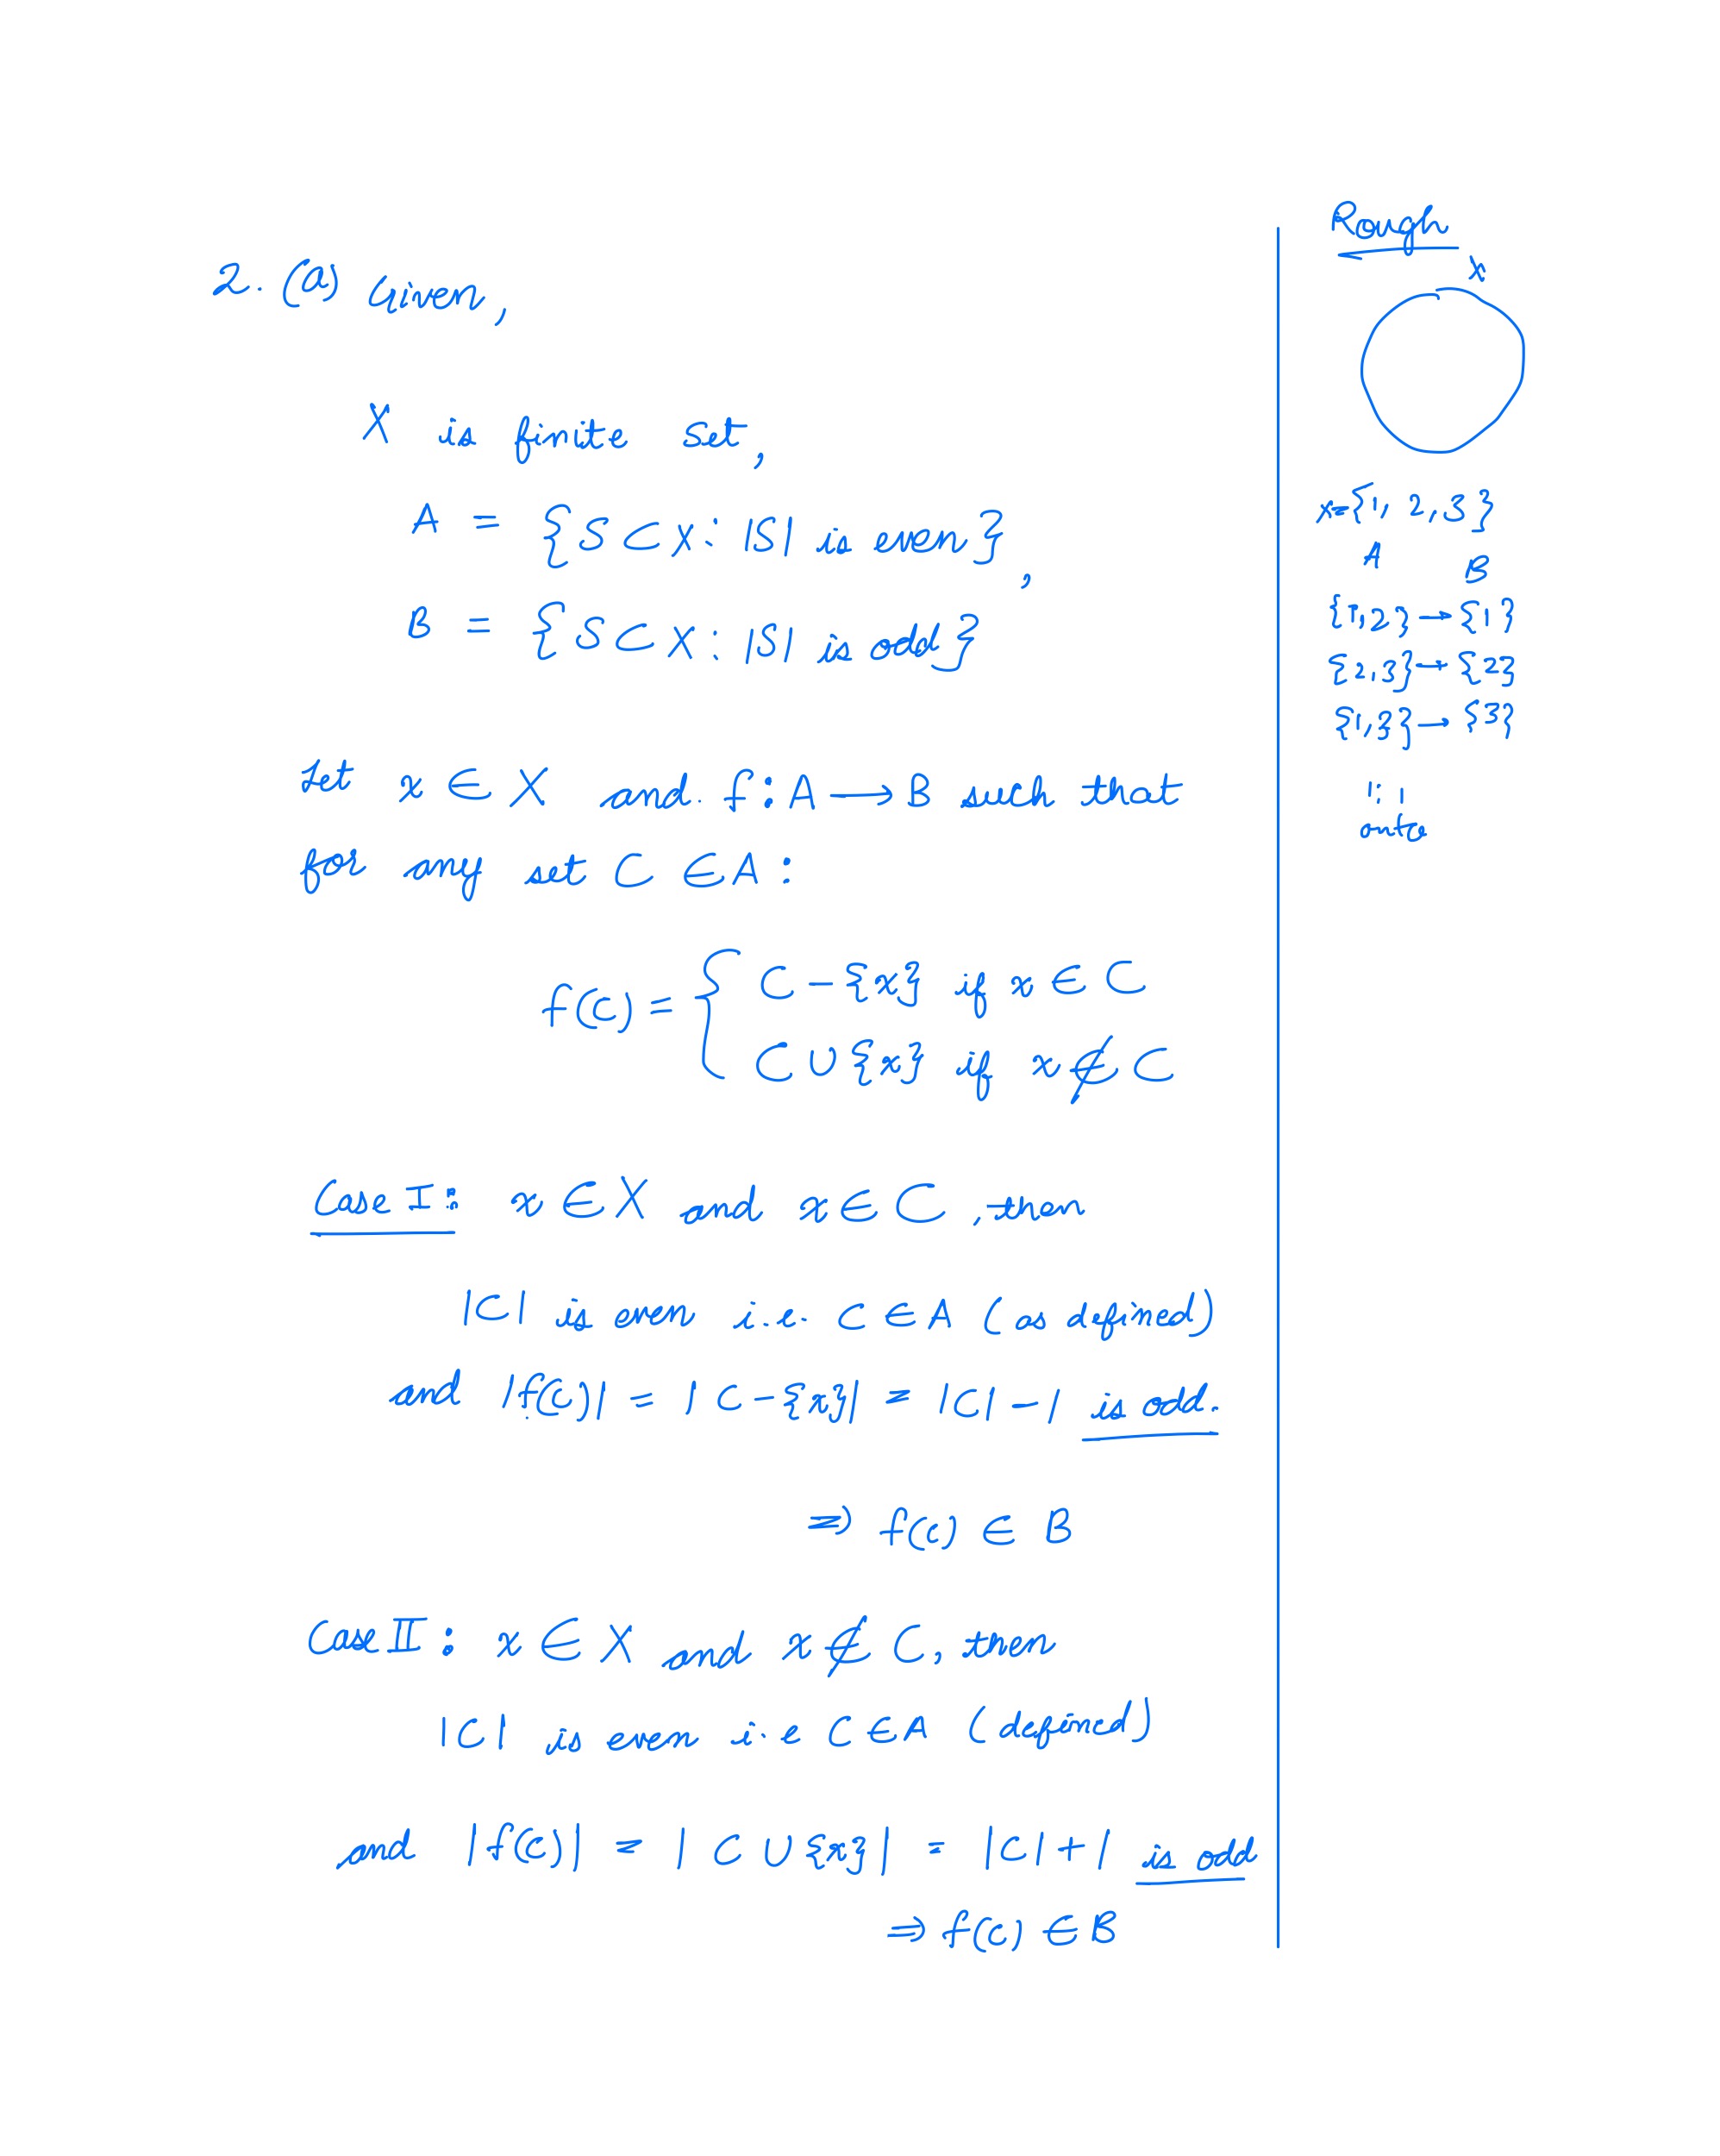 2. (a) Given,
X is finite set,
A = {S ⊂ X : |S| is even},
B = {S ⊂ X : |S| is odd}
Let x ∈ X and. f : A → B such that
for any set C ∈ A :
f(C) = { C - {x} if x ∈ C
C ∪ {x} if x ∉ C
Case I : x ∈ X and x ∈ C, then
|C| is even i.e. C ∈ A (as defined)
and |f(C)| = |C - {x}| = |C| - 1 is odd.
⇒ f(C) ∈ B
Case II : x ∈ X and x ∉ C, then
|C| is even i.e C ∈ A (defined)
and |f(C)| = |C ∪ {x}| = |C| + 1 is odd
⇒ f(C) ∈ B
Rough
X
X = {1, 2, 3}
A B
{1,2} → {1}
{2,3} → {2}
{1,3} → {3}
1:1
onto